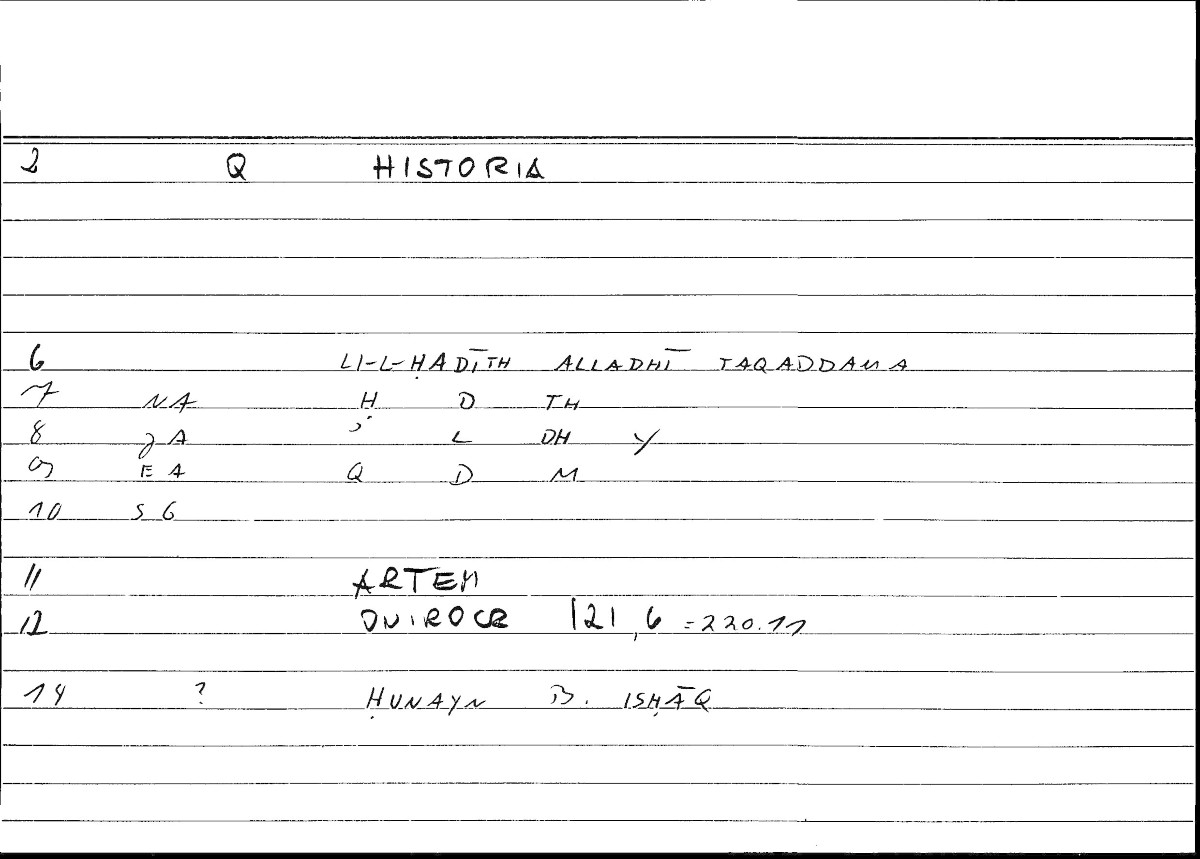 2 Q HISTORIA
6 LI-L-ḤADĪTH ALLADHĪ TAQADDAMA
7 NA Ḥ D TH
8 ZA ʾ L DH Y
9 EA Q D M
10 SG
11 ARTEM
12 ONIROCR 121,6 =220.11
14 ? ḤUNAYN B. ISḤĀQ